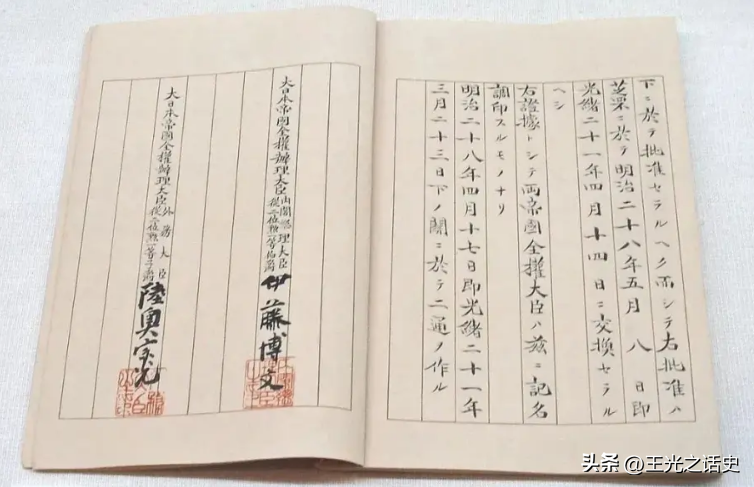 下ニ於テ批准セラルヘク而シテ右批准ハ
芝罘ニ於テ明治二十八年五月八日即
光緒二十一年四月十四日ニ交換セラル
ヘシ
右證據トシテ両帝國全權大臣ハ茲ニ記名
調印スルモノナリ
明治二十八年四月十七日即光緒二十一年
三月二十三日下ノ關ニ於テ二通ヲ作ル
大日本帝國全權辦理大臣內閣總理大臣從二位勲一等伯爵伊藤博文
大日本帝國全權辦理大臣外務大臣從二位勲一等子爵陸奧宗光
头条 @王光之话史